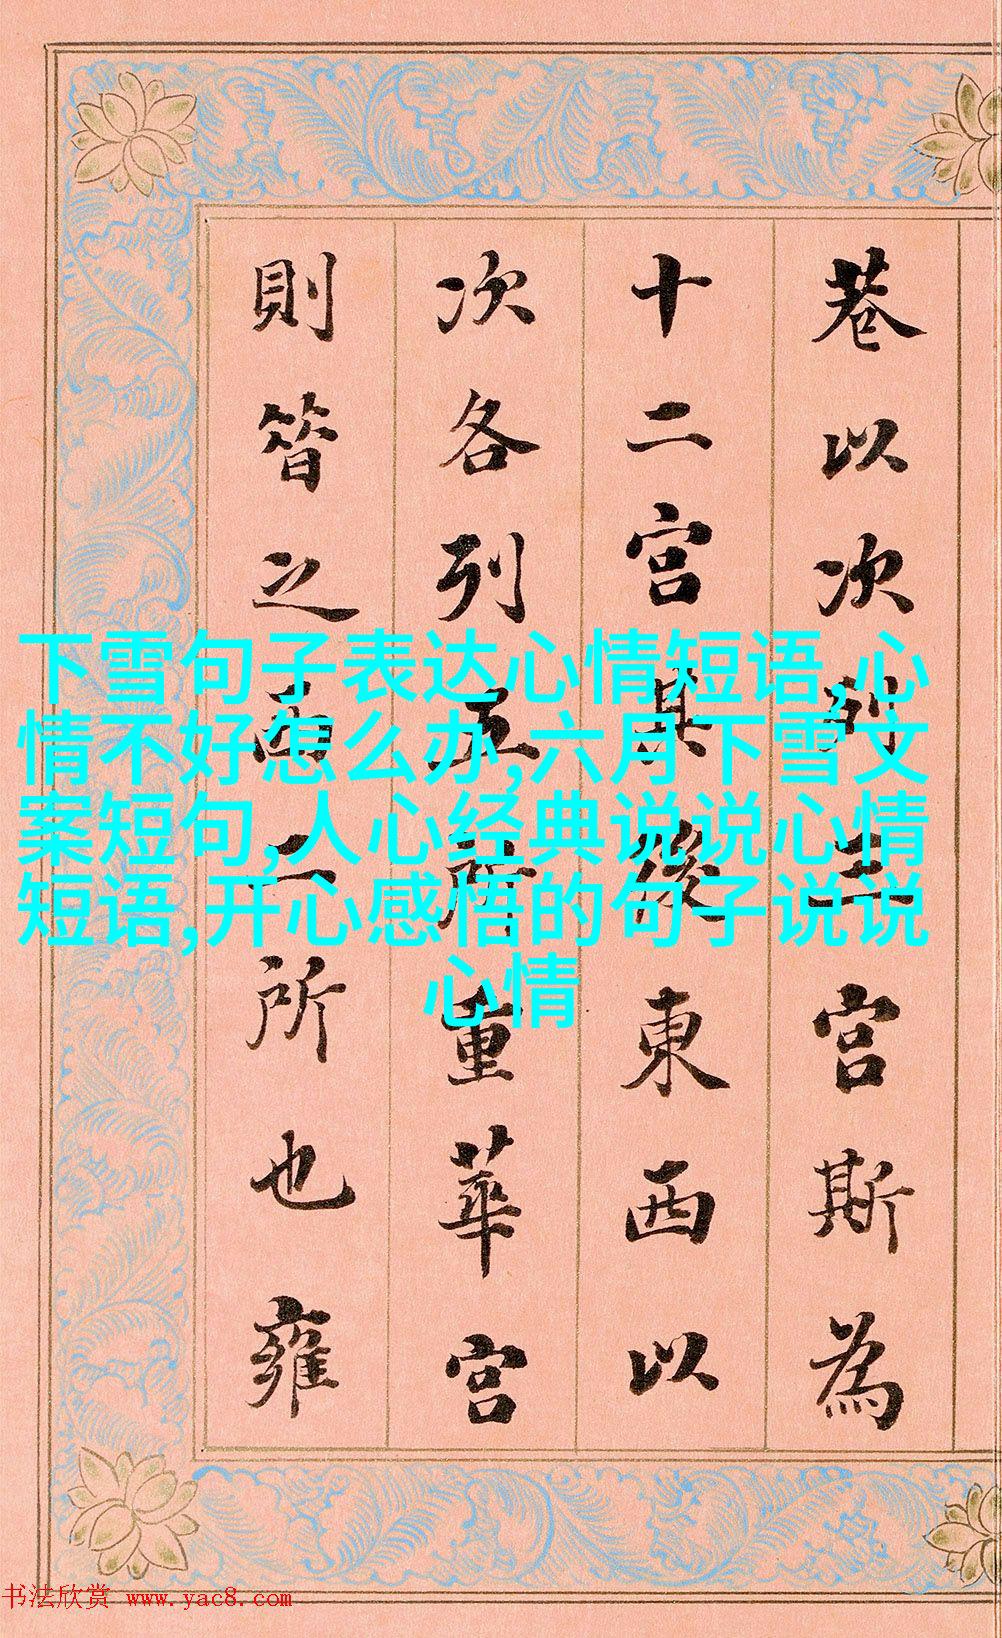 巷以次列三宮斯為
十二宮其後東西以
次各列五所重華宮
則昔之西二所也雍
下雪句子表达心情短语,心
情不好怎么办,六月下雪文
案短句,人心经典说说心情
短语,开心感悟的句子说说
心情
书法欣赏 www.yac8.com